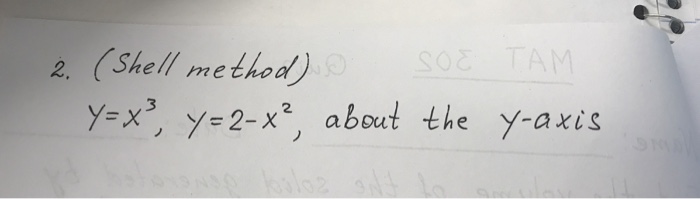 2. (Shell method)
y=x³, y=2-x², about the y-axis